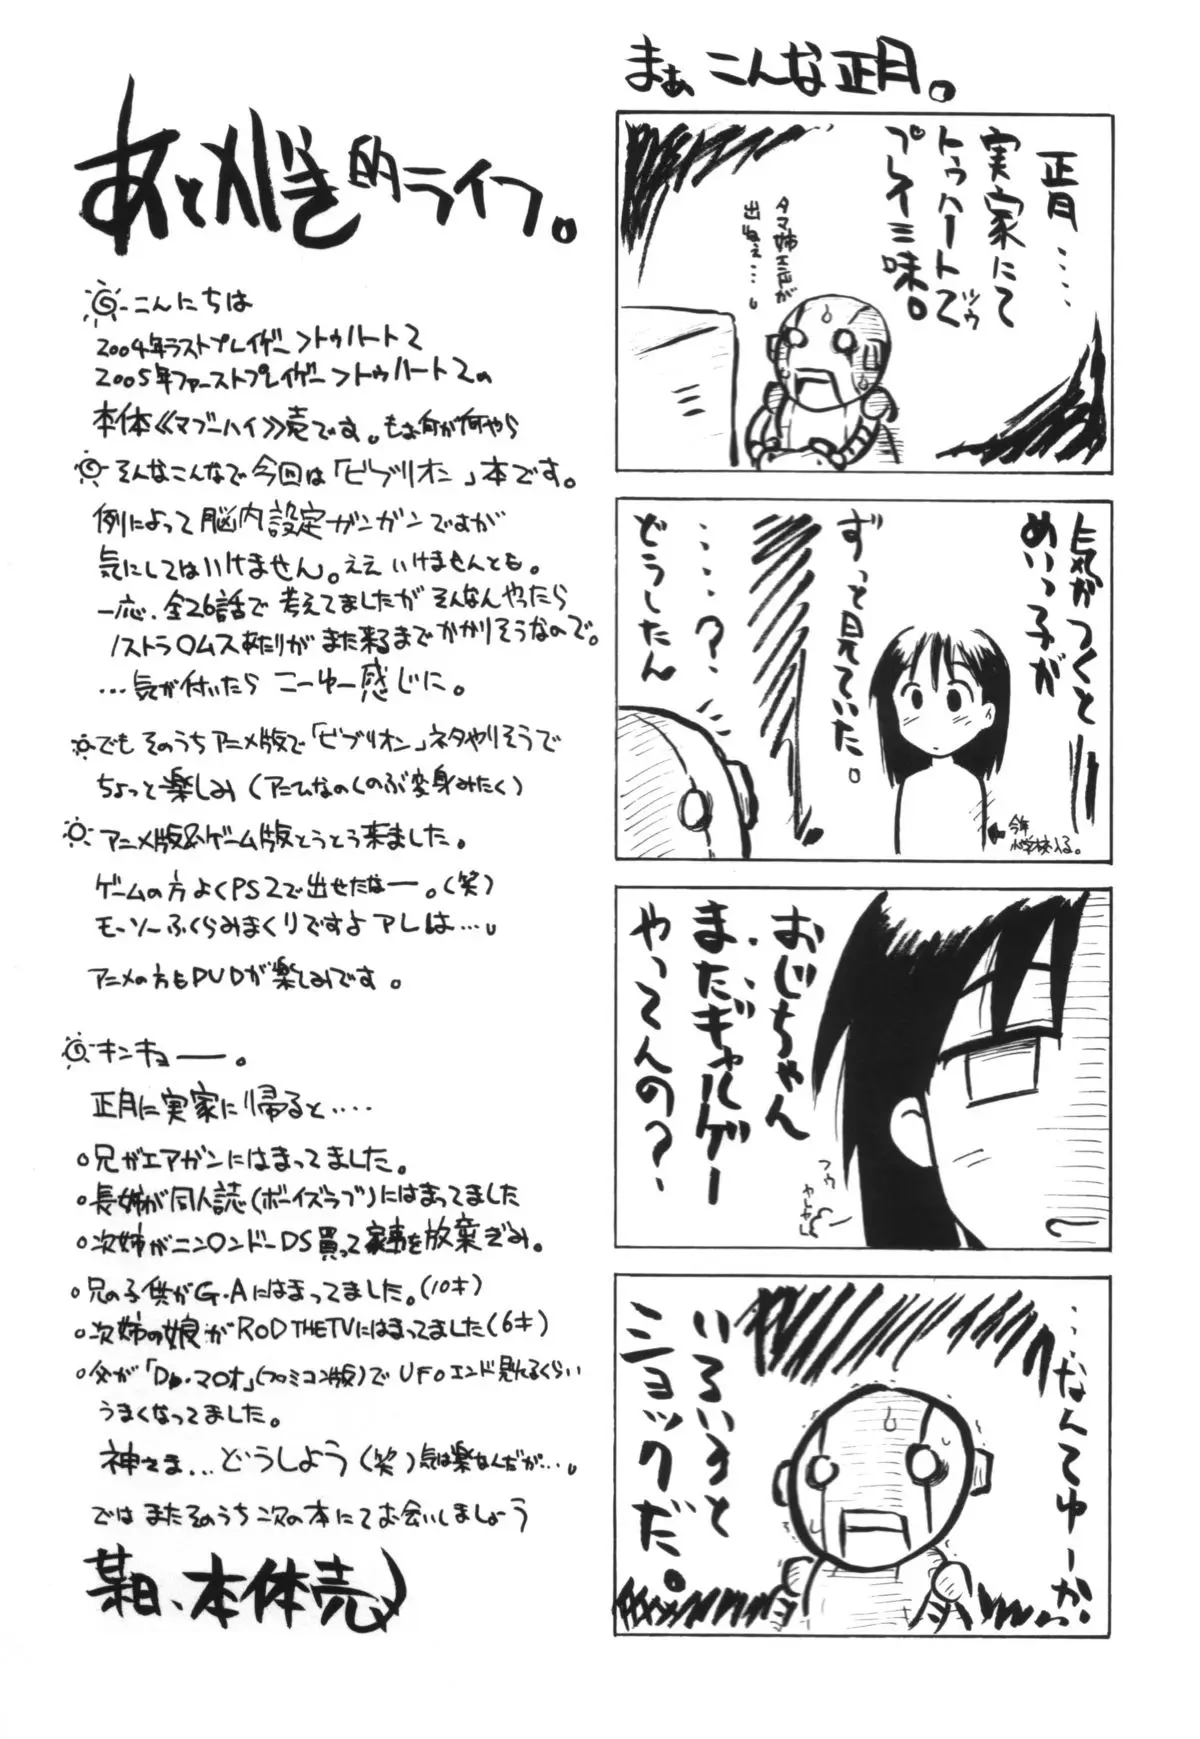 まぁ こんな正月。
正月‥‥
実家にて
トゥハート2で
ツゥ
プレイ三昧。
タマ姉エロが
出ねぇ‥‥。
気がつくと――
めいっ子が
ずっと見ていた。
‥‥?
どうしたん
今年
小学校入る。
おじちゃん
まだギャルゲー
やってんの?
フゥ
ヤレヤレ
‥‥なんてゆーか
いろいろと
ショックだ。
あとがき的ライフ。
こんにちは
2004年ラストプレイゲームトゥハート2
2005年ファーストプレイゲームトゥハート2の
本体《マブーハイ》売です。もぉ何が何やら
そんなこんなで今回は「ビブリオン」本です。
例によって脳内設定ガンガンですが
気にしてはいけません。ええ いけませんとも。
一応、全26話で 考えてましたが そんなんやったら
ノストラ〇ムスあたりが また来るまで かかりそうなので。
…気が付いたら こーゆー感じに。
でも そのうちアニメ版で「ビブリオン」ネタやりそうで
ちょっと楽しみ(アニむなのくのぶ変身みたく)
アニメ版&ゲーム版とうとう来ました。
ゲームの方よくPS2で出せたなー。(笑)
モーソーふくらみまくりですよアレは…。
アニメの方もDVDが楽しみです。
キンキョー。
正月に実家に帰ると‥‥
○兄がエアガンにはまってました。
○長姉が同人誌(ボーイズラブ)にはまってました
○次姉がニン〇ンドーDS買って家事を放棄ぎみ。
○兄の子供がG・Aにはまってました。(10才)
○次姉の娘がROD THE TVにはまってました(6才)
○父が「Dr.マ〇オ」(ファミコン版)でUFOエンド見れるくらい
うまくなってました。
神さま…どうしよう(笑)気は楽なんだが…。
では またそのうち次の本にてお会いしましょう
某日、本体売